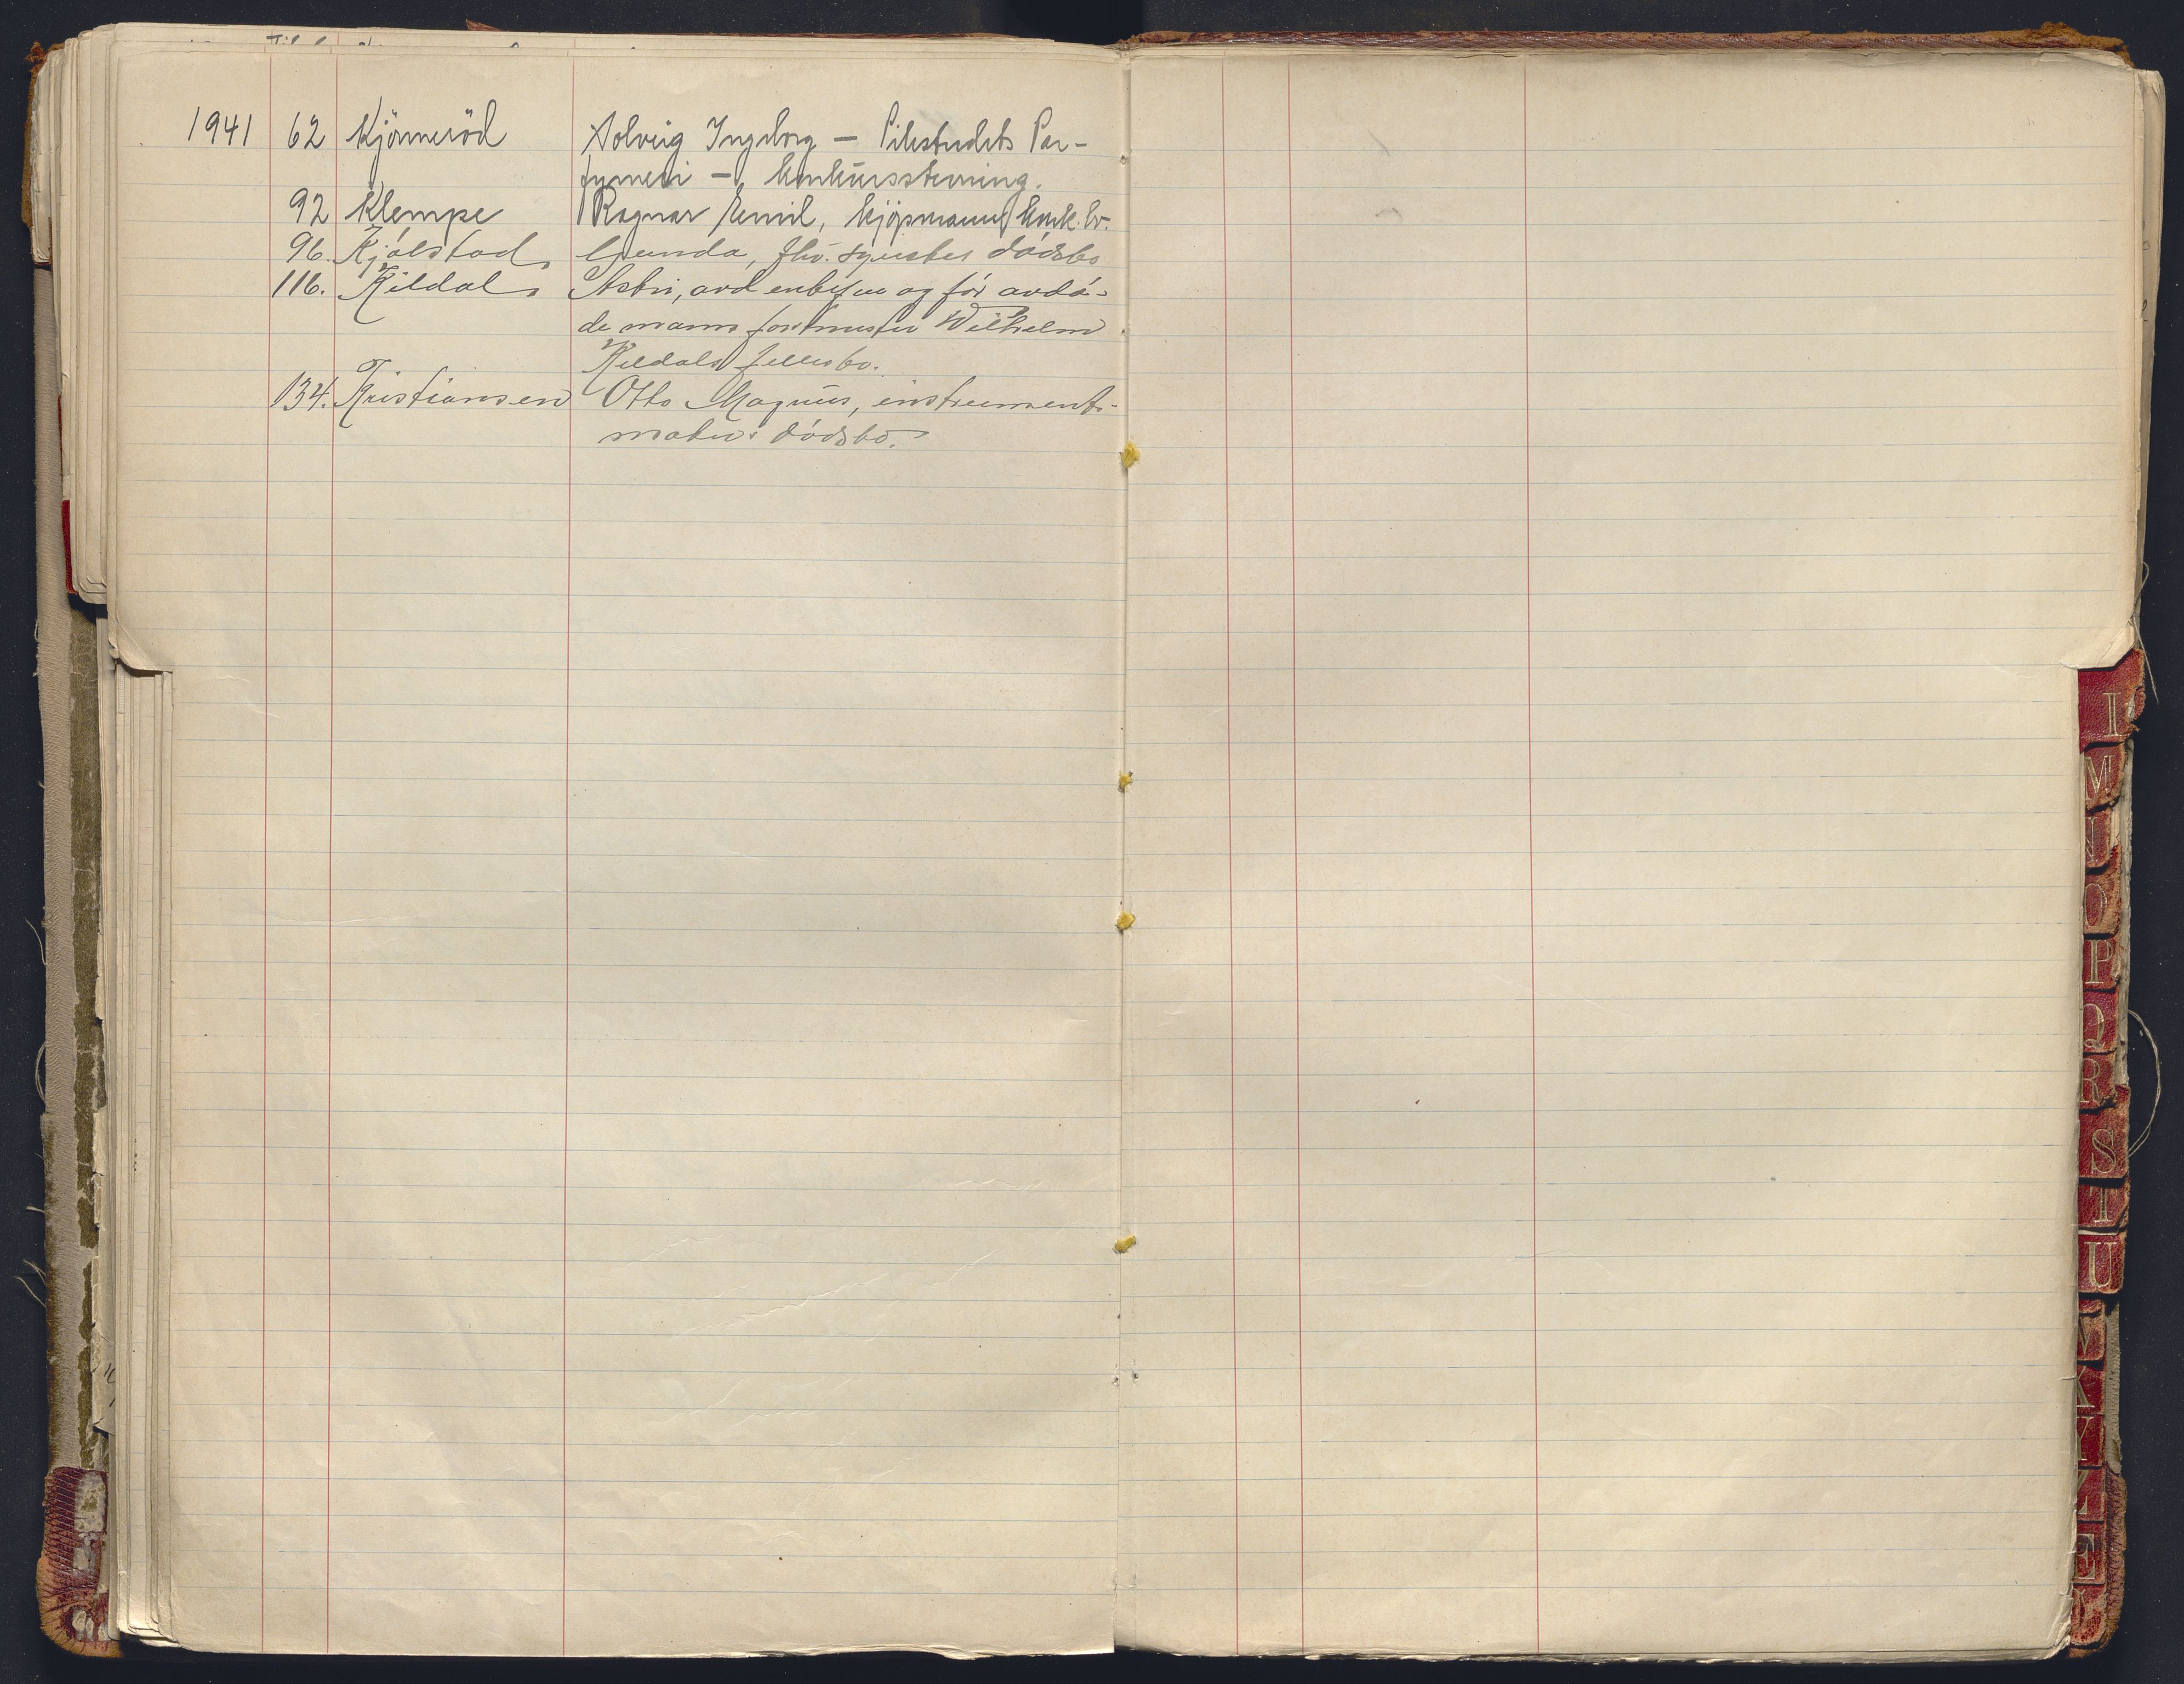 1941 62 Kjönneröd Solveig Ingeborg – Pilestredets Par-
fymeri – konkursstevning.
92 Klempe Ragnar Emil, kjøpmann, konk.bo.
96. Kjølstad, Gunda, fhv. syerskes dødsbo
116. Kildal, Astri, avd enkefrue og før avdø-
de mann forstmester Wilhelm
Kildals fellesbo.
134. Kristiansen Otto Magnus, instrument-
makers dødsbo.
I
M
N
O
P
Q
R
S
T
U
V
X
Y
Z
Æ